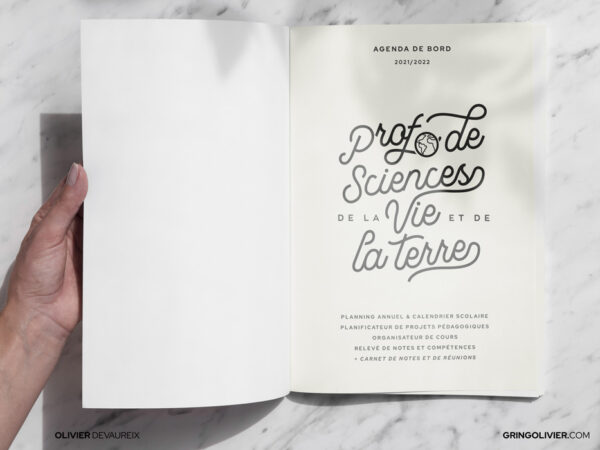 AGENDA DE BORD
2021/2022
Prof. de
Sciences
DE LA Vie ET DE
la terre
PLANNING ANNUEL & CALENDRIER SCOLAIRE
PLANIFICATEUR DE PROJETS PÉDAGOGIQUES
ORGANISATEUR DE COURS
RELEVÉ DE NOTES ET COMPÉTENCES
+ CARNET DE NOTES ET DE RÉUNIONS
OLIVIER DEVAUREIX
GRINGOLIVIER.COM